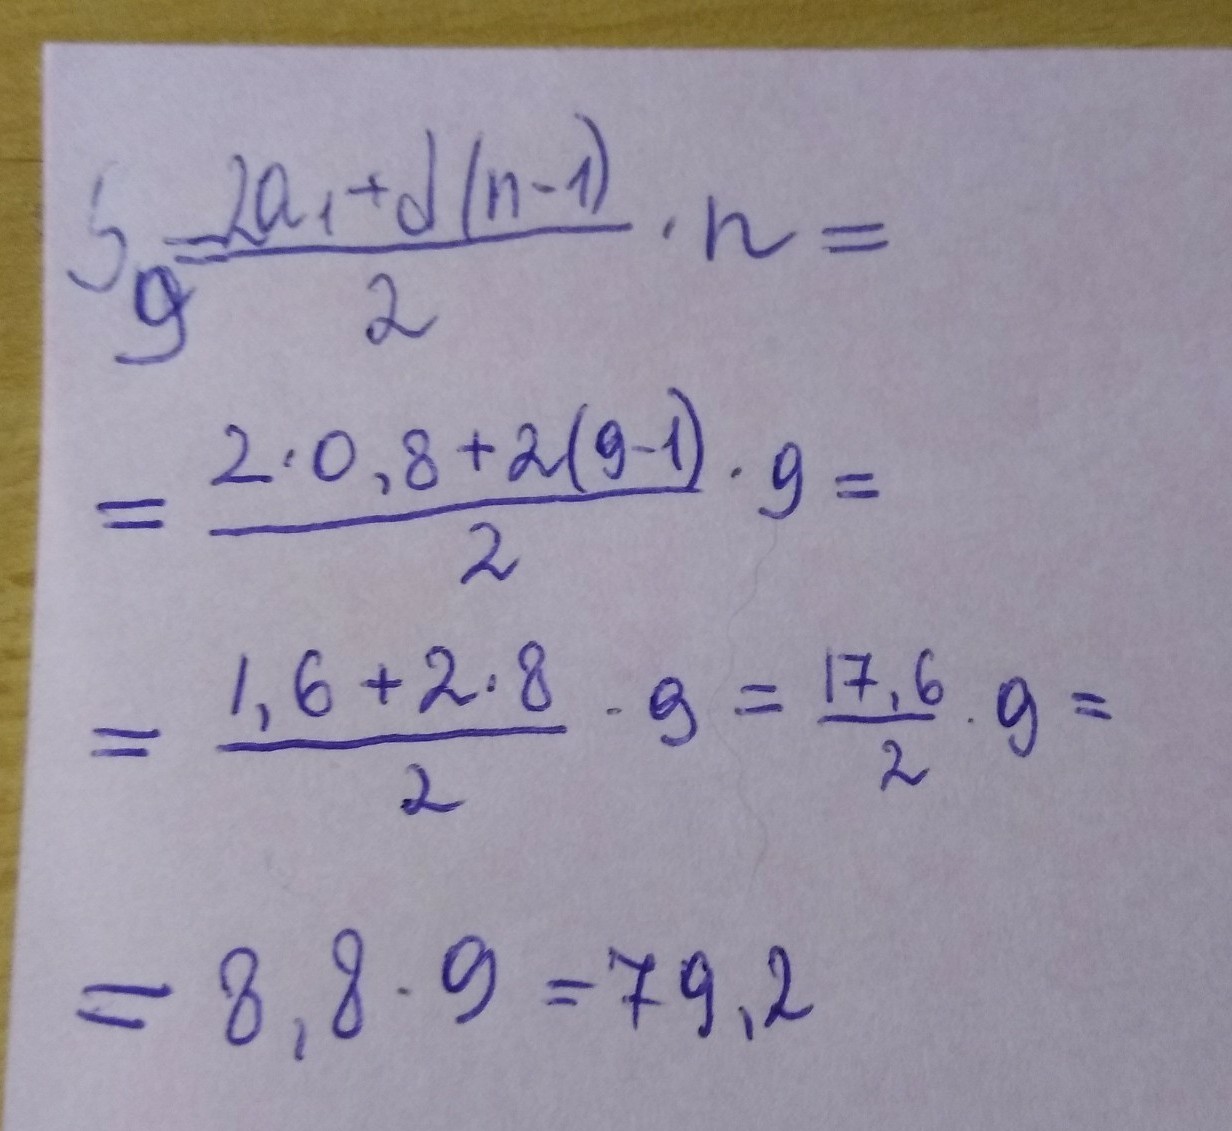 S₉ = (2a₁ + d(n-1))/2 · n =
= (2·0,8 + 2(9-1))/2 · 9 =
= (1,6 + 2·8)/2 · 9 = 17,6/2 · 9 =
= 8,8 · 9 = 79,2